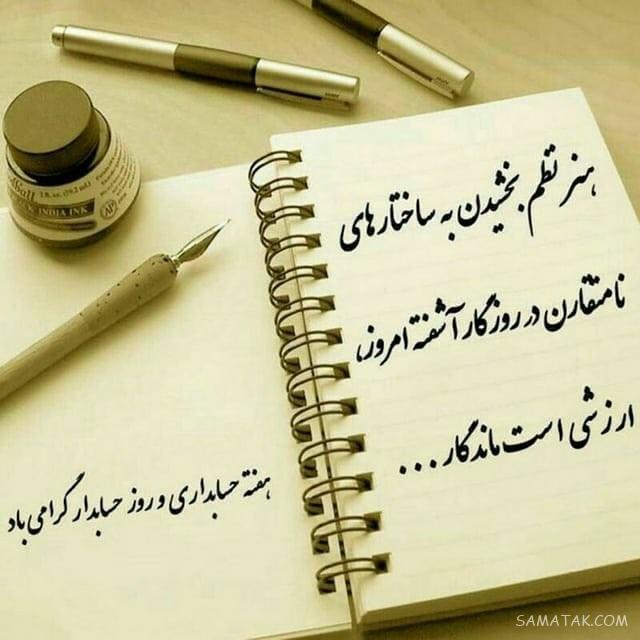 هنر نظم بخشیدن به ساختارهای
نامتقارن در روزگار آشفته امروز،
ارزشی است ماندگار ...
هفته حسابداری و روز حسابدار گرامی باد
INDIA INK
SAMATAK.COM